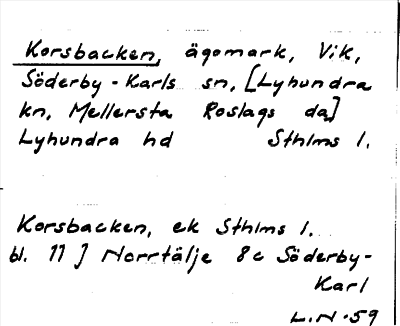 Korsbacken, ägomark, Vik,
Söderby-Karls sn, [Lyhundra
kn, Mellersta Roslags da]
Lyhundra hd Sthlms l.
Korsbacken, ek Sthlms l.
bl. 11 J Norrtälje 8c Söderby-
Karl
L.N. 59